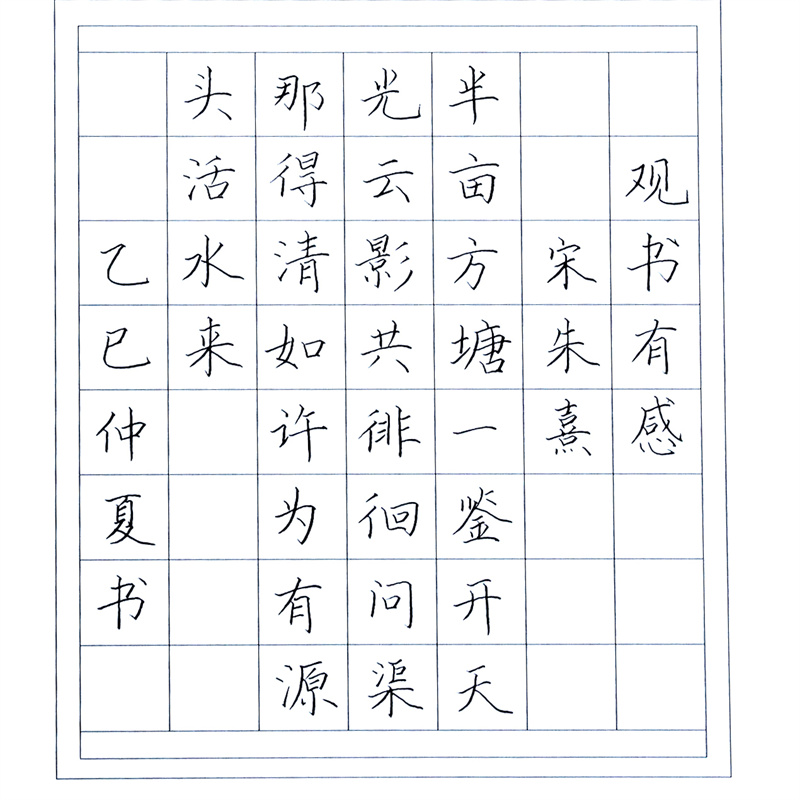 观书有感
宋朱熹
半亩方塘一鉴开天
光云影共徘徊问渠
那得清如许为有源
头活水来
乙巳仲夏书